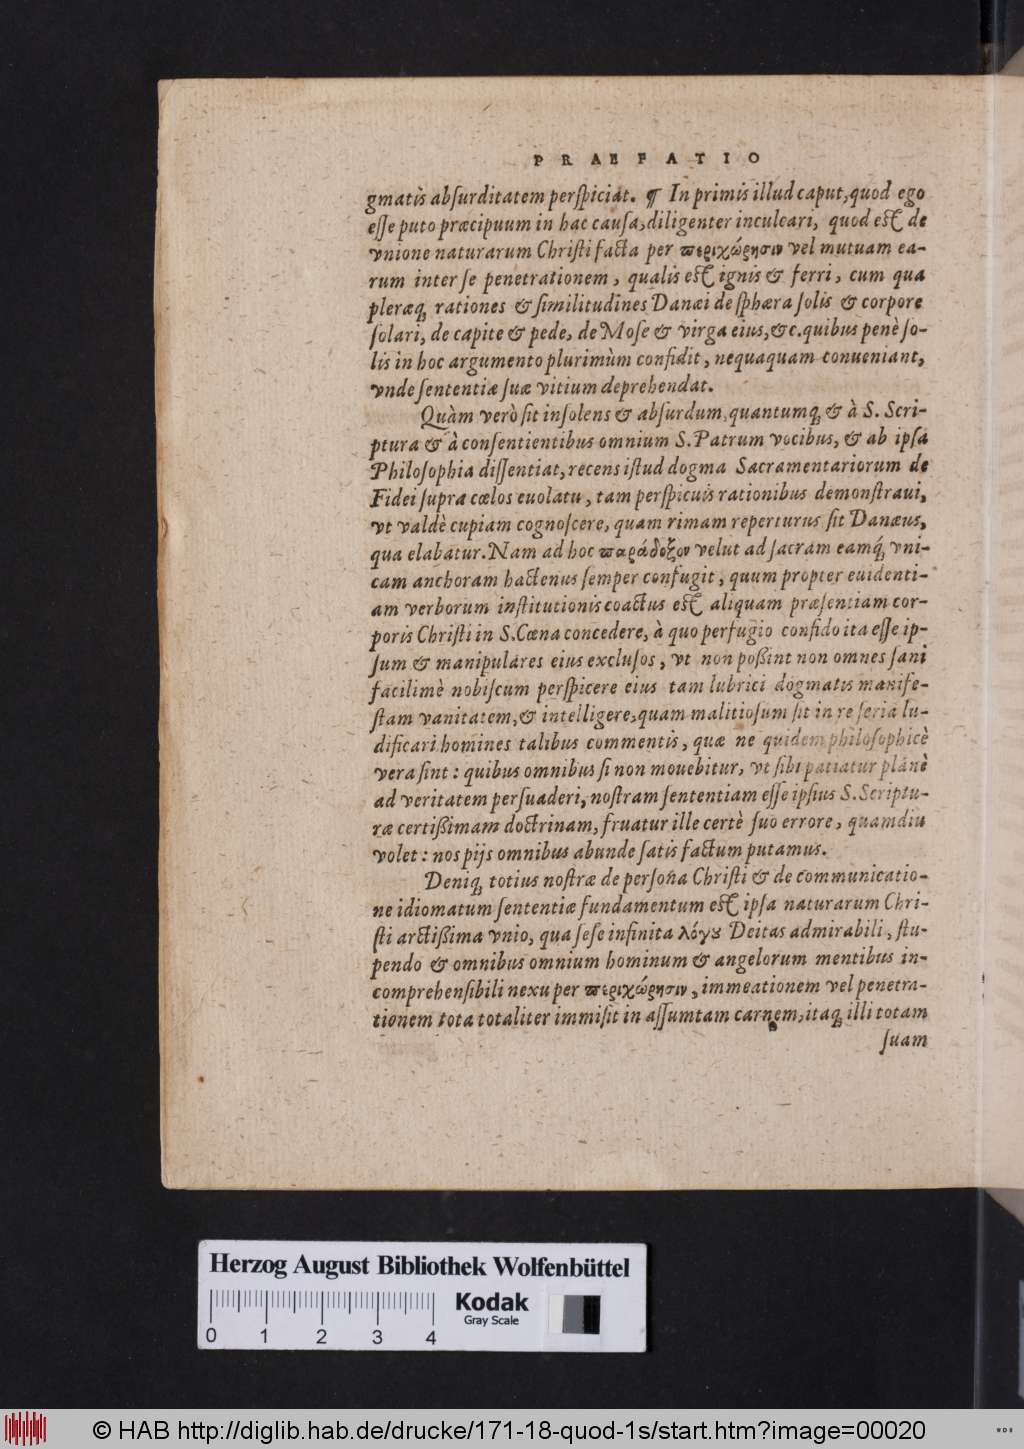 PRAEFATIO
gmatis absurditatem perspiciat. ¶ In primis illud caput, quod ego
esse puto præcipuum in hac causa, diligenter inculcari, quod est de
vnione naturarum Christi facta per περιχώρησιν vel mutuam ea-
rum inter se penetrationem, qualis est ignis & ferri, cum qua
pleræq; rationes & similitudines Danæi de sphæra solis & corpore
solari, de capite & pede, de Mose & virga eius, &c. quibus penè so-
lis in hoc argumento plurimùm confidit, nequaquam conueniant,
vnde sententiæ suæ vitium deprehendat.
Quàm verò sit insolens & absurdum, quantumq; & à S. Scri-
ptura & à consentientibus omnium S. Patrum vocibus, & ab ipsa
Philosophia dissentiat, recens istud dogma Sacramentariorum de
Fidei supra cœlos euolatu, tam perspicuis rationibus demonstraui,
vt valdè cupiam cognoscere, quam rimam reperturus sit Danæus,
qua elabatur. Nam ad hoc παράδοξον velut ad sacram eamq́; vni-
cam anchoram hactenus semper confugit, quum propter euidenti-
am verborum institutionis coactus est aliquam præsentiam cor-
poris Christi in S. Cœna concedere, à quo perfugio confido ita esse ip-
sum & manipulares eius exclusos, vt non poßint non omnes sani
facilimè nobiscum perspicere eius tam lubrici dogmatis manife-
stam vanitatem, & intelligere, quam malitiosum sit in re seria lu-
dificari homines talibus commentis, quæ ne quidem philosophicè
vera sint: quibus omnibus si non mouebitur, vt sibi patiatur planè
ad veritatem persuaderi, nostram sententiam esse ipsius S. Scriptu-
ræ certißimam doctrinam, fruatur ille certè suo errore, quamdiu
volet: nos pijs omnibus abunde satis factum putamus.
Deniq; totius nostræ de persona Christi & de communicatio-
ne idiomatum sententiæ fundamentum est ipsa naturarum Chri-
sti arctißima vnio, qua sese infinita λόγȣ Deitas admirabili, stu-
pendo & omnibus omnium hominum & angelorum mentibus in-
comprehensibili nexu per περιχώρησιν, immeationem vel penetra-
tionem tota totaliter immisit in assumtam carnem, itaq; illi totam
suam
Herzog August Bibliothek Wolfenbüttel
Kodak
Gray Scale
0 1 2 3 4
© HAB http://diglib.hab.de/drucke/171-18-quod-1s/start.htm?image=00020